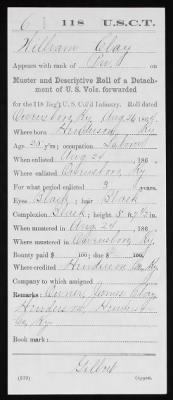 C | 118 | U.S.C.T.
William Clay
Appears with rank of Pvt on
Muster and Descriptive Roll of a Detachment
of U. S. Vols. forwarded
for the 118 Reg't U. S. Col'd Infantry. Roll dated
Owensboro, Ky Aug 26, 1864.
Where born Henderson, Ky
Age 25 y'rs; occupation Laborer
When enlisted Aug 24, 186
Where enlisted Owensboro, Ky
For what period enlisted 3 years.
Eyes Black; hair Black
Complexion Black; height 5 ft. in.
When mustered in Aug 24, 186
Where mustered in Owensboro, Ky
Bounty paid $ 100; due $ 100
Where credited Henderson Co, Ky
Company to which assigned
Remarks: Owner, James Clay
Henderson, Henderson
Co, Ky
Book mark:
(339) Copyist.